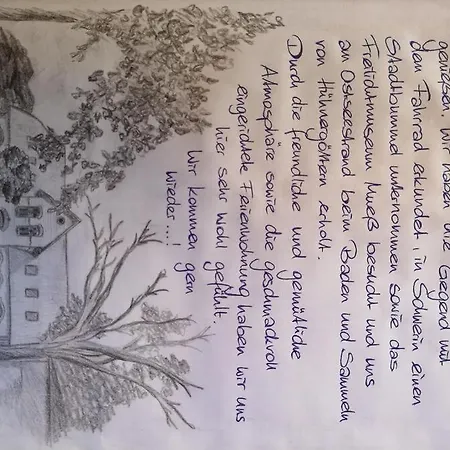 genießen. Wir haben die Gegend mit
dem Fahrrad erkundet, in Schwerin einen
Stadtbummel unternommen sowie das
Freilichtmuseum Mueß besucht und uns
am Ostseestrand beim Baden und Sammeln
von Hühnergöttern erholt.
Durch die freundliche und gemütliche
Atmosphäre sowie die geschmackvoll
eingerichtete Ferienwohnung haben wir uns
hier sehr wohl gefühlt.
Wir kommen gern
wieder...!